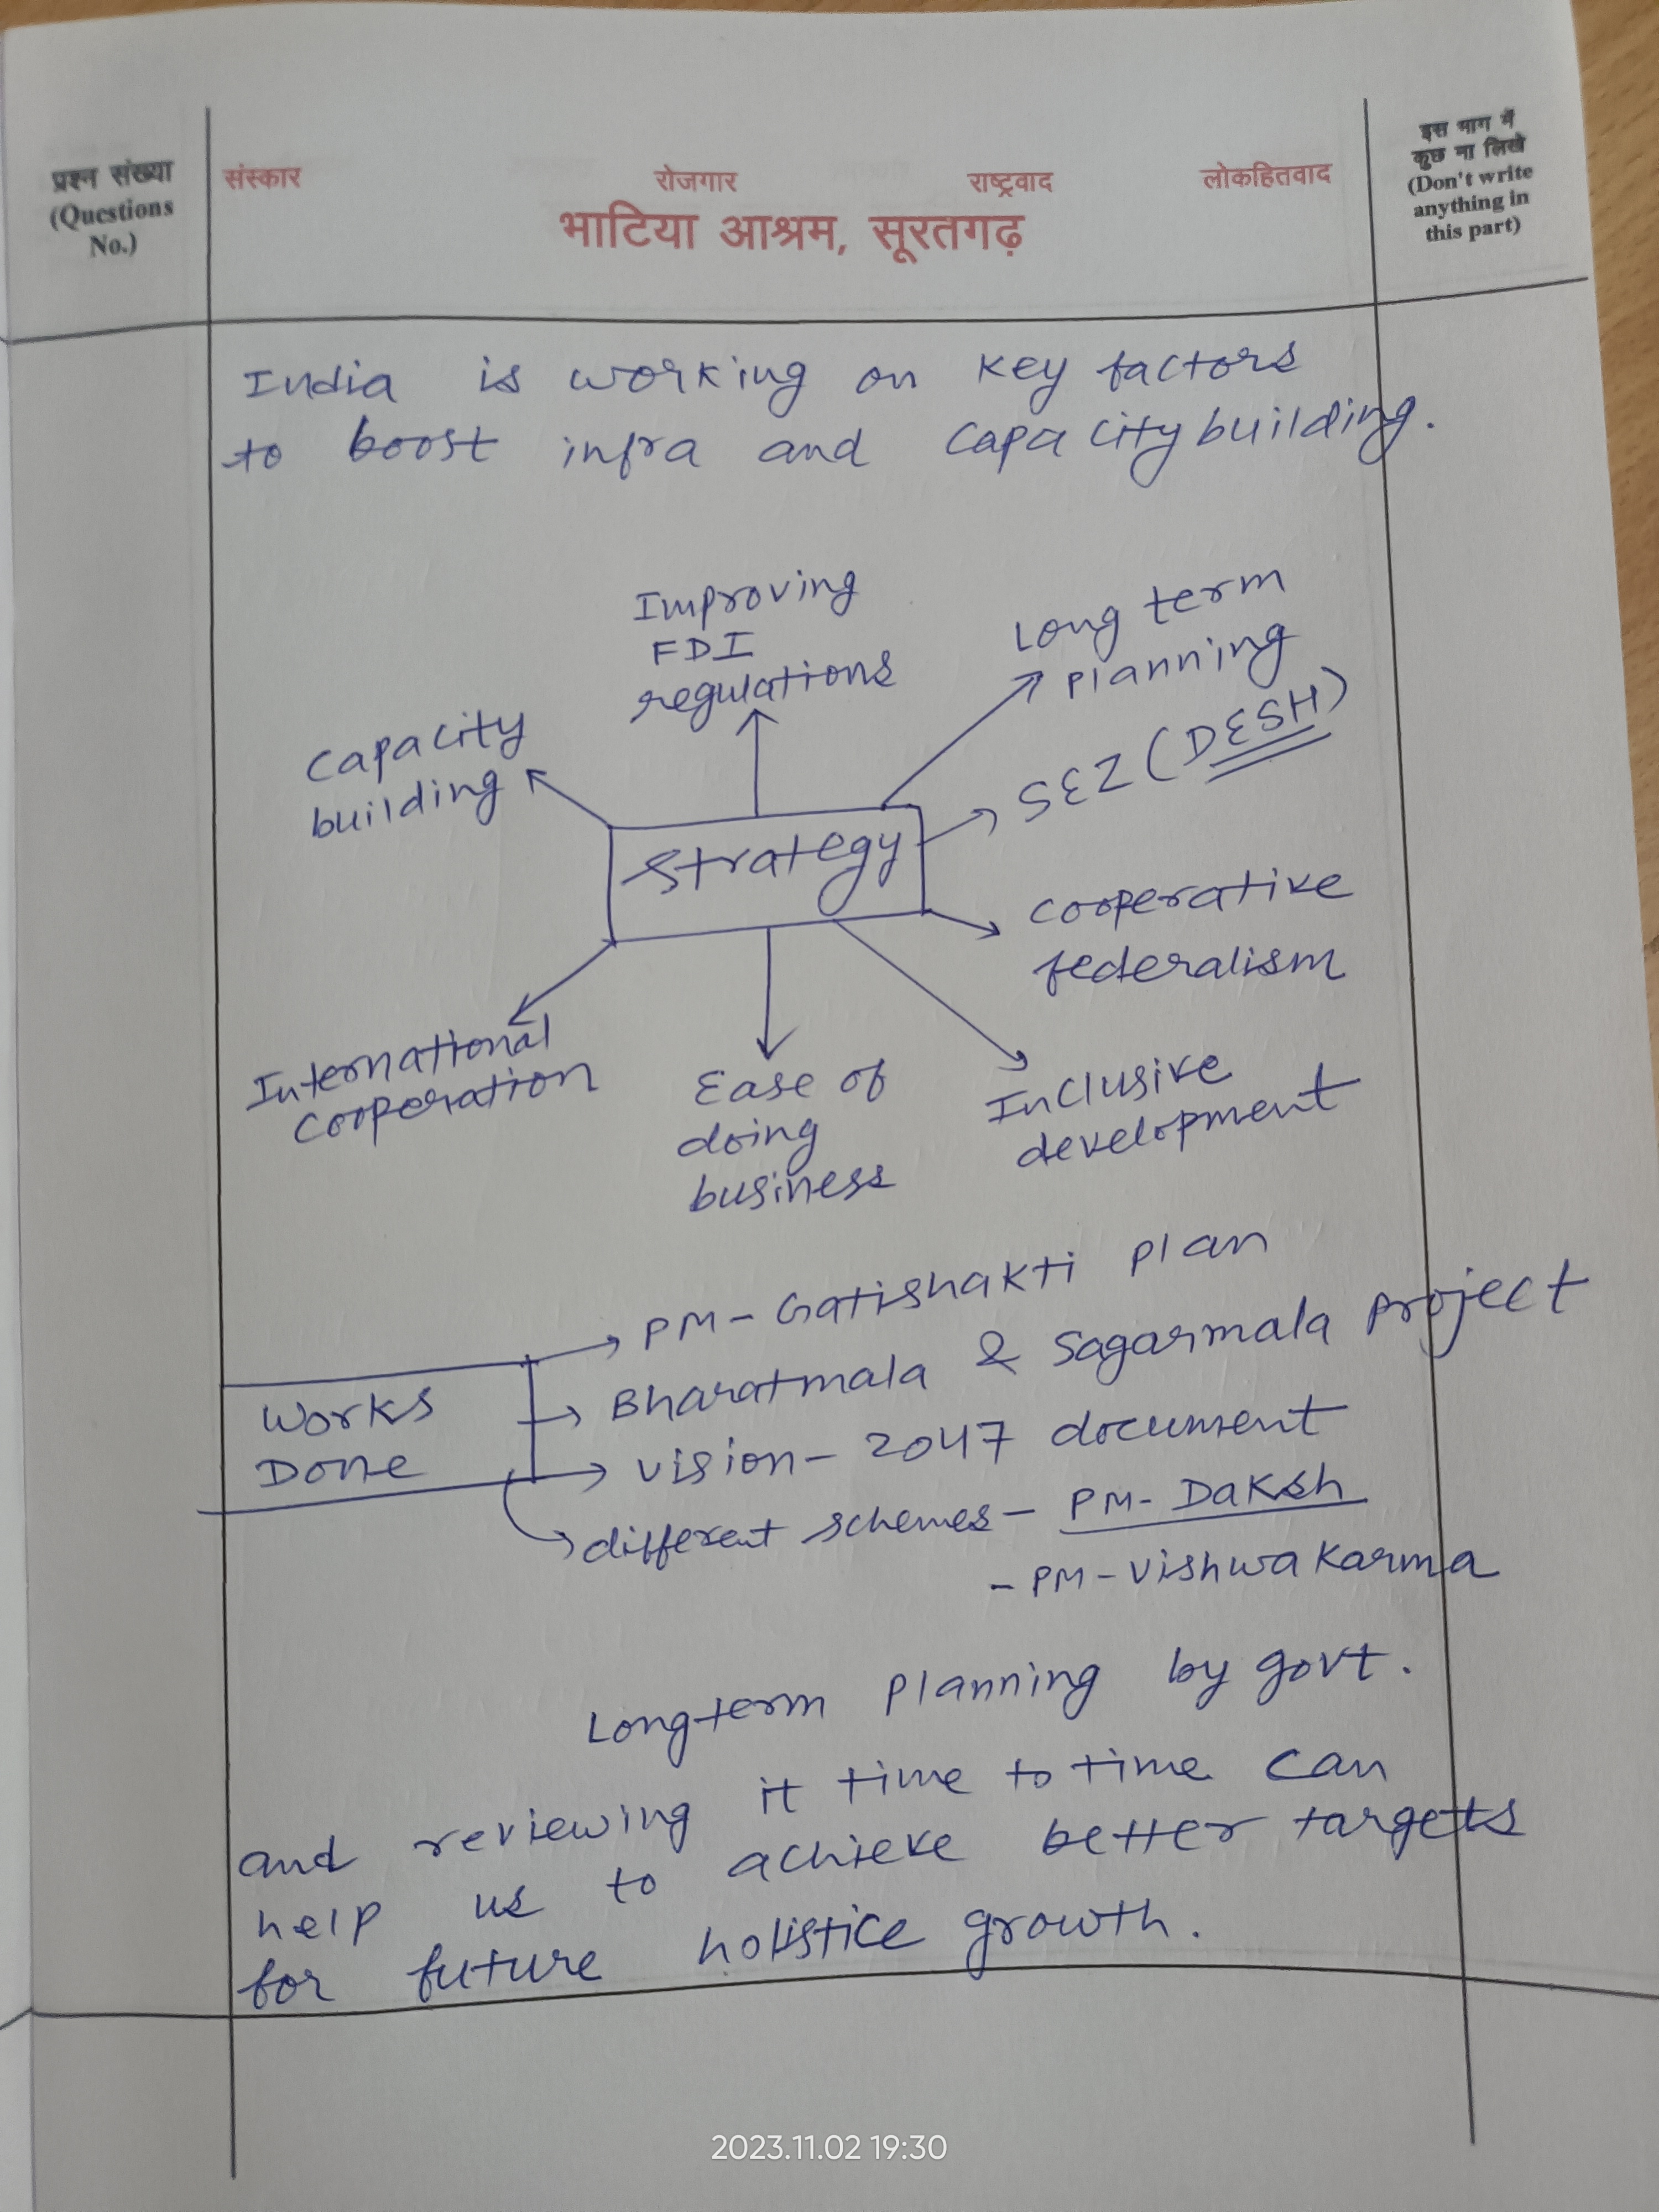 प्रश्न संख्या
(Questions
No.)
संस्कार रोजगार राष्ट्रवाद लोकहितवाद
भाटिया आश्रम, सूरतगढ़
इस भाग में
कुछ ना लिखे
(Don't write
anything in
this part)
India is working on key factors
to boost infra and capacity building.
Improving
FDI
regulations
Long term
planning
Capacity
building
SEZ (DESH)
Strategy
cooperative
federalism
International
cooperation
Ease of
doing
business
Inclusive
development
Works
Done
PM- Gatishakti plan
Bharatmala & Sagarmala project
Vision- 2047 document
different schemes - PM- Daksh
- PM- Vishwakarma
Longterm planning by govt.
and reviewing it time to time can
help us to achieve better targets
for future holistice growth.
2023.11.02 19:30